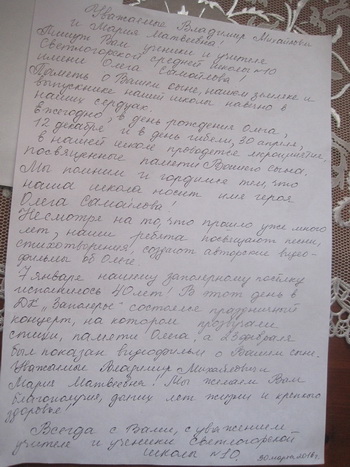 Уважаемые Владимир Михайлович
и Мария Матвеевна!
Пишут Вам ученики и учителя
Светлогорской средней школы №10
имени Олега Самойлова!
Память о Вашем сыне, нашем земляке и
выпускнике нашей школы навечно в
наших сердцах.
Ежегодно, в день рождения Олега,
12 декабря и в день гибели, 30 апреля,
в нашей школе проводятся мероприятия,
посвященные памяти Вашего сына.
Мы помним и гордимся тем, что
наша школа носит имя героя
Олега Самойлова!
Несмотря на то, что прошло уже много
лет, наши ребята посвящают песни,
стихотворения, создают авторские видео-
фильмы об Олеге.
7 января нашему заполярному посёлку
исполнилось 40 лет! В этот день в
состоялся праздничный
концерт, на котором прозвучали
стихи, памяти Олега, а 23 февраля
был показан видеофильм о Вашем сыне.
Уважаемые Владимир Михайлович и
Мария Матвеевна! Мы желаем Вам
благополучия, долгих лет жизни и крепкого
здоровья!
Всегда с Вами, с уважением
учителя и ученики Светлогорской
школы №10